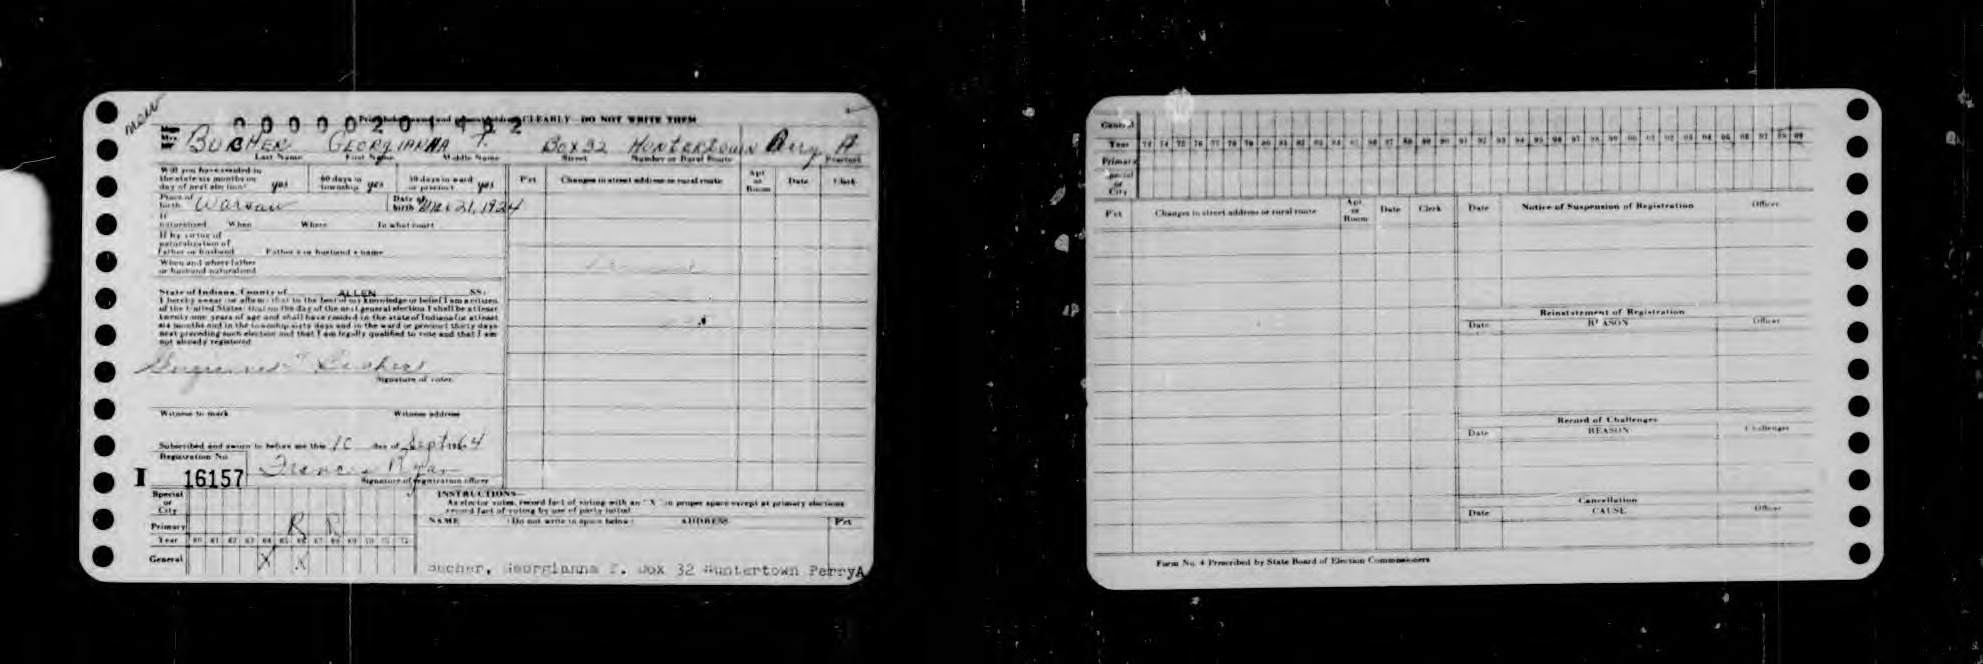 new
0000020 1462
CLEARLY—DO NOT WRITE THEM
Miss
Mrs
Mr
BUCHER GEORGIANNA F. Box 32 HUNTERTOWN Perry A
Last Name First Name Middle Name Street Number or Rural Route Precinct
Will you have resided in the state six months on day of next election? yes
60 days in township yes
30 days in ward or precinct yes
Place of birth Warsaw
Date of birth Mar 21, 1924
If naturalized When Where In what court
If by virtue of naturalization of Father or husband Father's or husband's name
When and where father or husband naturalized
State of Indiana, County of ALLEN SS:
I hereby swear (or affirm) that to the best of my knowledge or belief I am a citizen
of the United States; that on the day of the next general election I shall be at least
twenty-one years of age and shall have resided in the state of Indiana for at least
six months and in the township sixty days and in the ward or precinct thirty days
next preceding such election and that I am legally qualified to vote and that I am
not already registered
Georgianna F. Bucher
Signature of voter
Witness to mark Witness address
Subscribed and sworn to before me this 10 day of Sept 1964
Registration No
I 16157
Francis Ryan
Signature of registration officer
Special or City
Primary R R
Year 60 61 62 63 64 65 66 67 68 69 70 71 72
General X X
P'ct Changes in street address or rural route Apt or Room Date Clerk
INSTRUCTIONS—
As elector votes, record fact of voting with an "X" in proper space except at primary elections
record fact of voting by use of party initial
NAME (Do not write in space below) ADDRESS P'ct
Bucher, Georgianna F. Box 32 Huntertown PerryA
General
Year 73 74 75 76 77 78 79 80 81 82 83 84 85 86 87 88 89 90 91 92 93 94 95 96 97 98 99 00 01 02 03 04 05 06 07 08 09
Primary
Special or City
P'ct Changes in street address or rural route Apt or Room Date Clerk
Date Notice of Suspension of Registration Officer
Reinstatement of Registration
Date REASON Officer
Record of Challenges
Date REASON Challenger
Cancellation
Date CAUSE Officer
Form No. 4 Prescribed by State Board of Election Commissioners